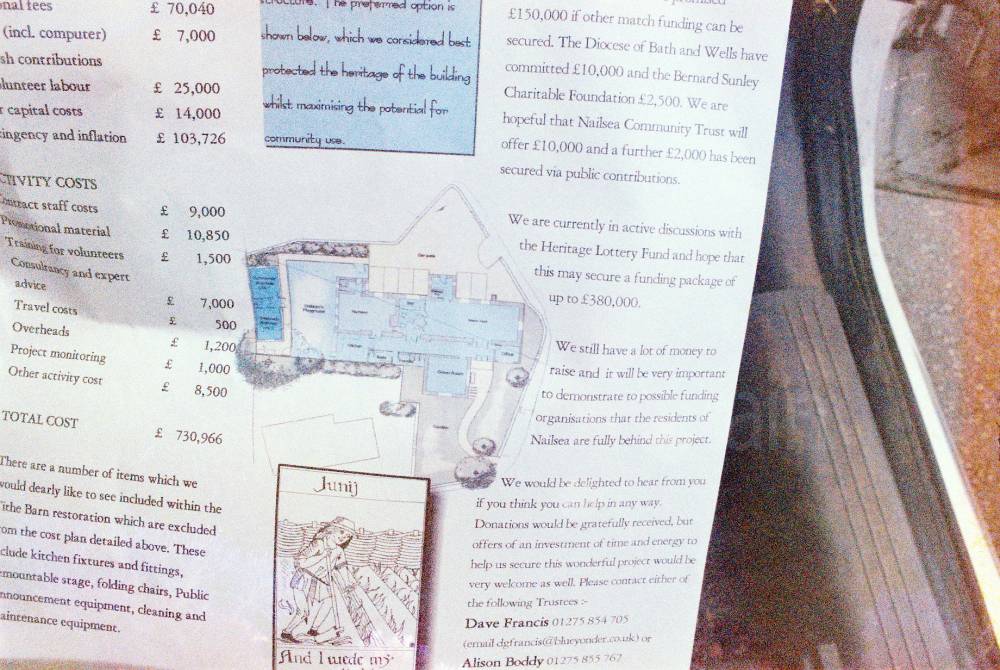 nal fees £ 70,040
(incl. computer) £ 7,000
sh contributions
lunteer labour £ 25,000
r capital costs £ 14,000
ingency and inflation £ 103,726
CTIVITY COSTS
Contract staff costs £ 9,000
Promotional material £ 10,850
Training for volunteers £ 1,500
Consultancy and expert
advice £ 7,000
Travel costs £ 500
Overheads £ 1,200
Project monitoring £ 1,000
Other activity cost £ 8,500
TOTAL COST £ 730,966
There are a number of items which we
would dearly like to see included within the
Tithe Barn restoration which are excluded
rom the cost plan detailed above. These
clude kitchen fixtures and fittings,
mountable stage, folding chairs, Public
nnouncement equipment, cleaning and
aintenance equipment.
structure. The preferred option is
shown below, which we considered best
protected the heritage of the building
whilst maximising the potential for
community use.
Junij
And I wede my
£150,000 if other match funding can be
secured. The Diocese of Bath and Wells have
committed £10,000 and the Bernard Sunley
Charitable Foundation £2,500. We are
hopeful that Nailsea Community Trust will
offer £10,000 and a further £2,000 has been
secured via public contributions.
We are currently in active discussions with
the Heritage Lottery Fund and hope that
this may secure a funding package of
up to £380,000.
We still have a lot of money to
raise and it will be very important
to demonstrate to possible funding
organisations that the residents of
Nailsea are fully behind this project.
We would be delighted to hear from you
if you think you can help in any way.
Donations would be gratefully received, but
offers of an investment of time and energy to
help us secure this wonderful project would be
very welcome as well. Please contact either of
the following Trustees :-
Dave Francis 01275 854 705
(email dgfrancis@blueyonder.co.uk) or
Alison Boddy 01275 855 767